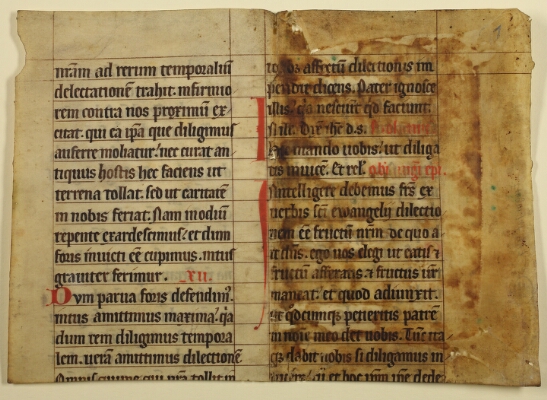 nram ad rerum temporaliu
delectatione trahit. infirmio
rem contra nos proximu ex
citat. qui ea ipa que diligimus
auferre moliatur. nec curat an
tiquus hostis hec faciens ut
terrena tollat. sed ut caritate
in nobis feriat. Nam modium
repente exardescimus. et dum
foris invicti ee cupimus. intus
graviter ferimur. xii.
Dvm parva foris defendim.
mitis amittimus maxima. qa
dum rem diligimus tempora
lem. veram amittimus dilectione
Omnis quippe qui nra tollit in
affectu dilectionis im
pendit dicens. Pater ignosce
illis. qa nesciunt qd faciunt.
Hec mando vobis. ut diliga
tis invice. Et rel.
Intelligere debemus frs ex
verbis sci ewangelij dilectio
nem ee fructu nrm de quo a
it dns. ego vos elegi ut eatis &
fructu afferatis. & fructus vr
maneat. et quod adiunxit.
Ut qdcumq petieritis patre
in noie meo det vobis. Tuc ita
q dabit vobis si diligamus in
vice. qi et hoc ipm ipe dede